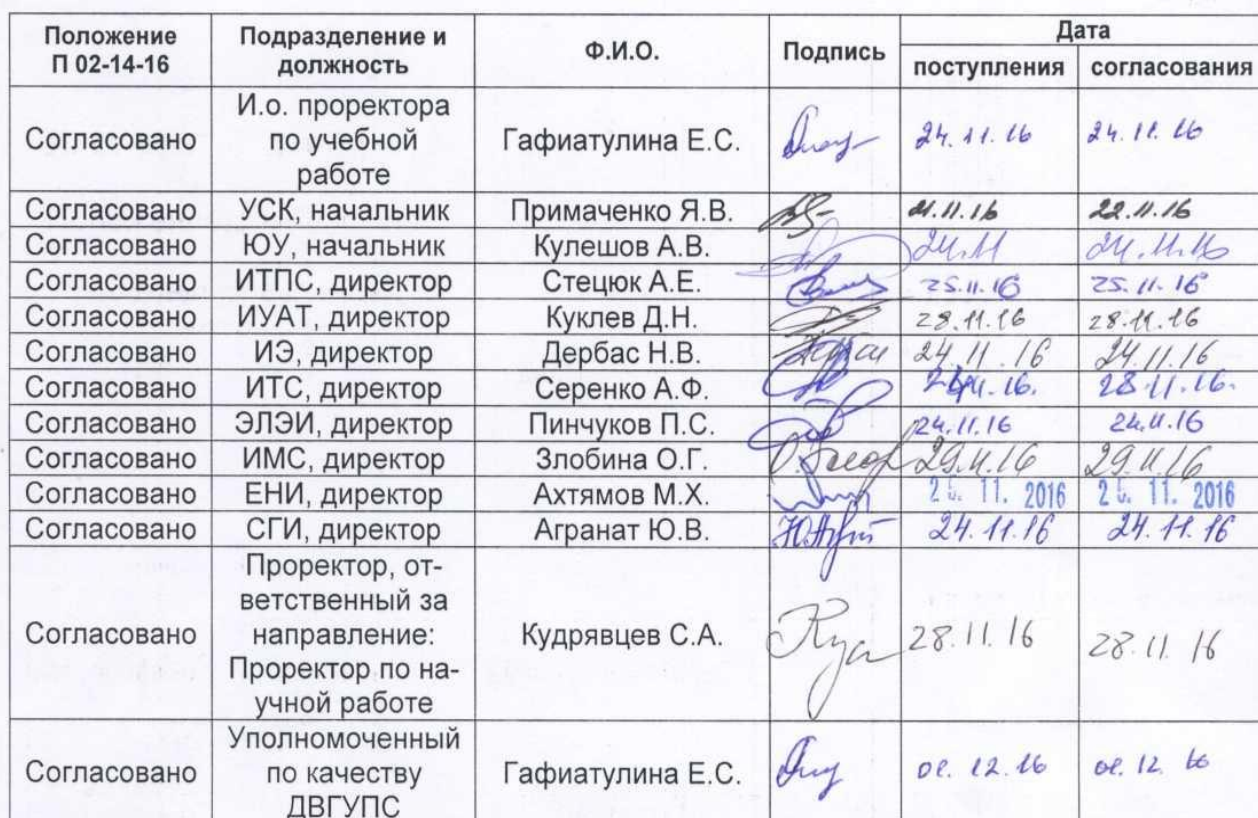 Положение П 02-14-16 Подразделение и должность Ф.И.О. Подпись Дата
поступления согласования
Согласовано И.о. проректора по учебной работе Гафиатулина Е.С. 24.11.16 24.11.16
Согласовано УСК, начальник Примаченко Я.В. 22.11.16
Согласовано ЮУ, начальник Кулешов А.В. 24.11 24.11.16
Согласовано ИТПС, директор Стецюк А.Е. 25.11.16 25.11.16
Согласовано ИУАТ, директор Куклев Д.Н. 28.11.16 28.11.16
Согласовано ИЭ, директор Дербас Н.В. 24.11.16 24.11.16
Согласовано ИТС, директор Серенко А.Ф. 28.11.16.
Согласовано ЭЛЭИ, директор Пинчуков П.С. 24.11.16 24.11.16
Согласовано ИМС, директор Злобина О.Г. 29.11.16 29.11.16
Согласовано ЕНИ, директор Ахтямов М.Х. 11. 2016 11. 2016
Согласовано СГИ, директор Агранат Ю.В. 24.11.16 24.11.16
Согласовано Проректор, от-
ветственный за
направление:
Проректор по на-
учной работе Кудрявцев С.А. 28.11.16 28.11.16
Согласовано Уполномоченный по качеству ДВГУПС Гафиатулина Е.С. 12.16 12.16